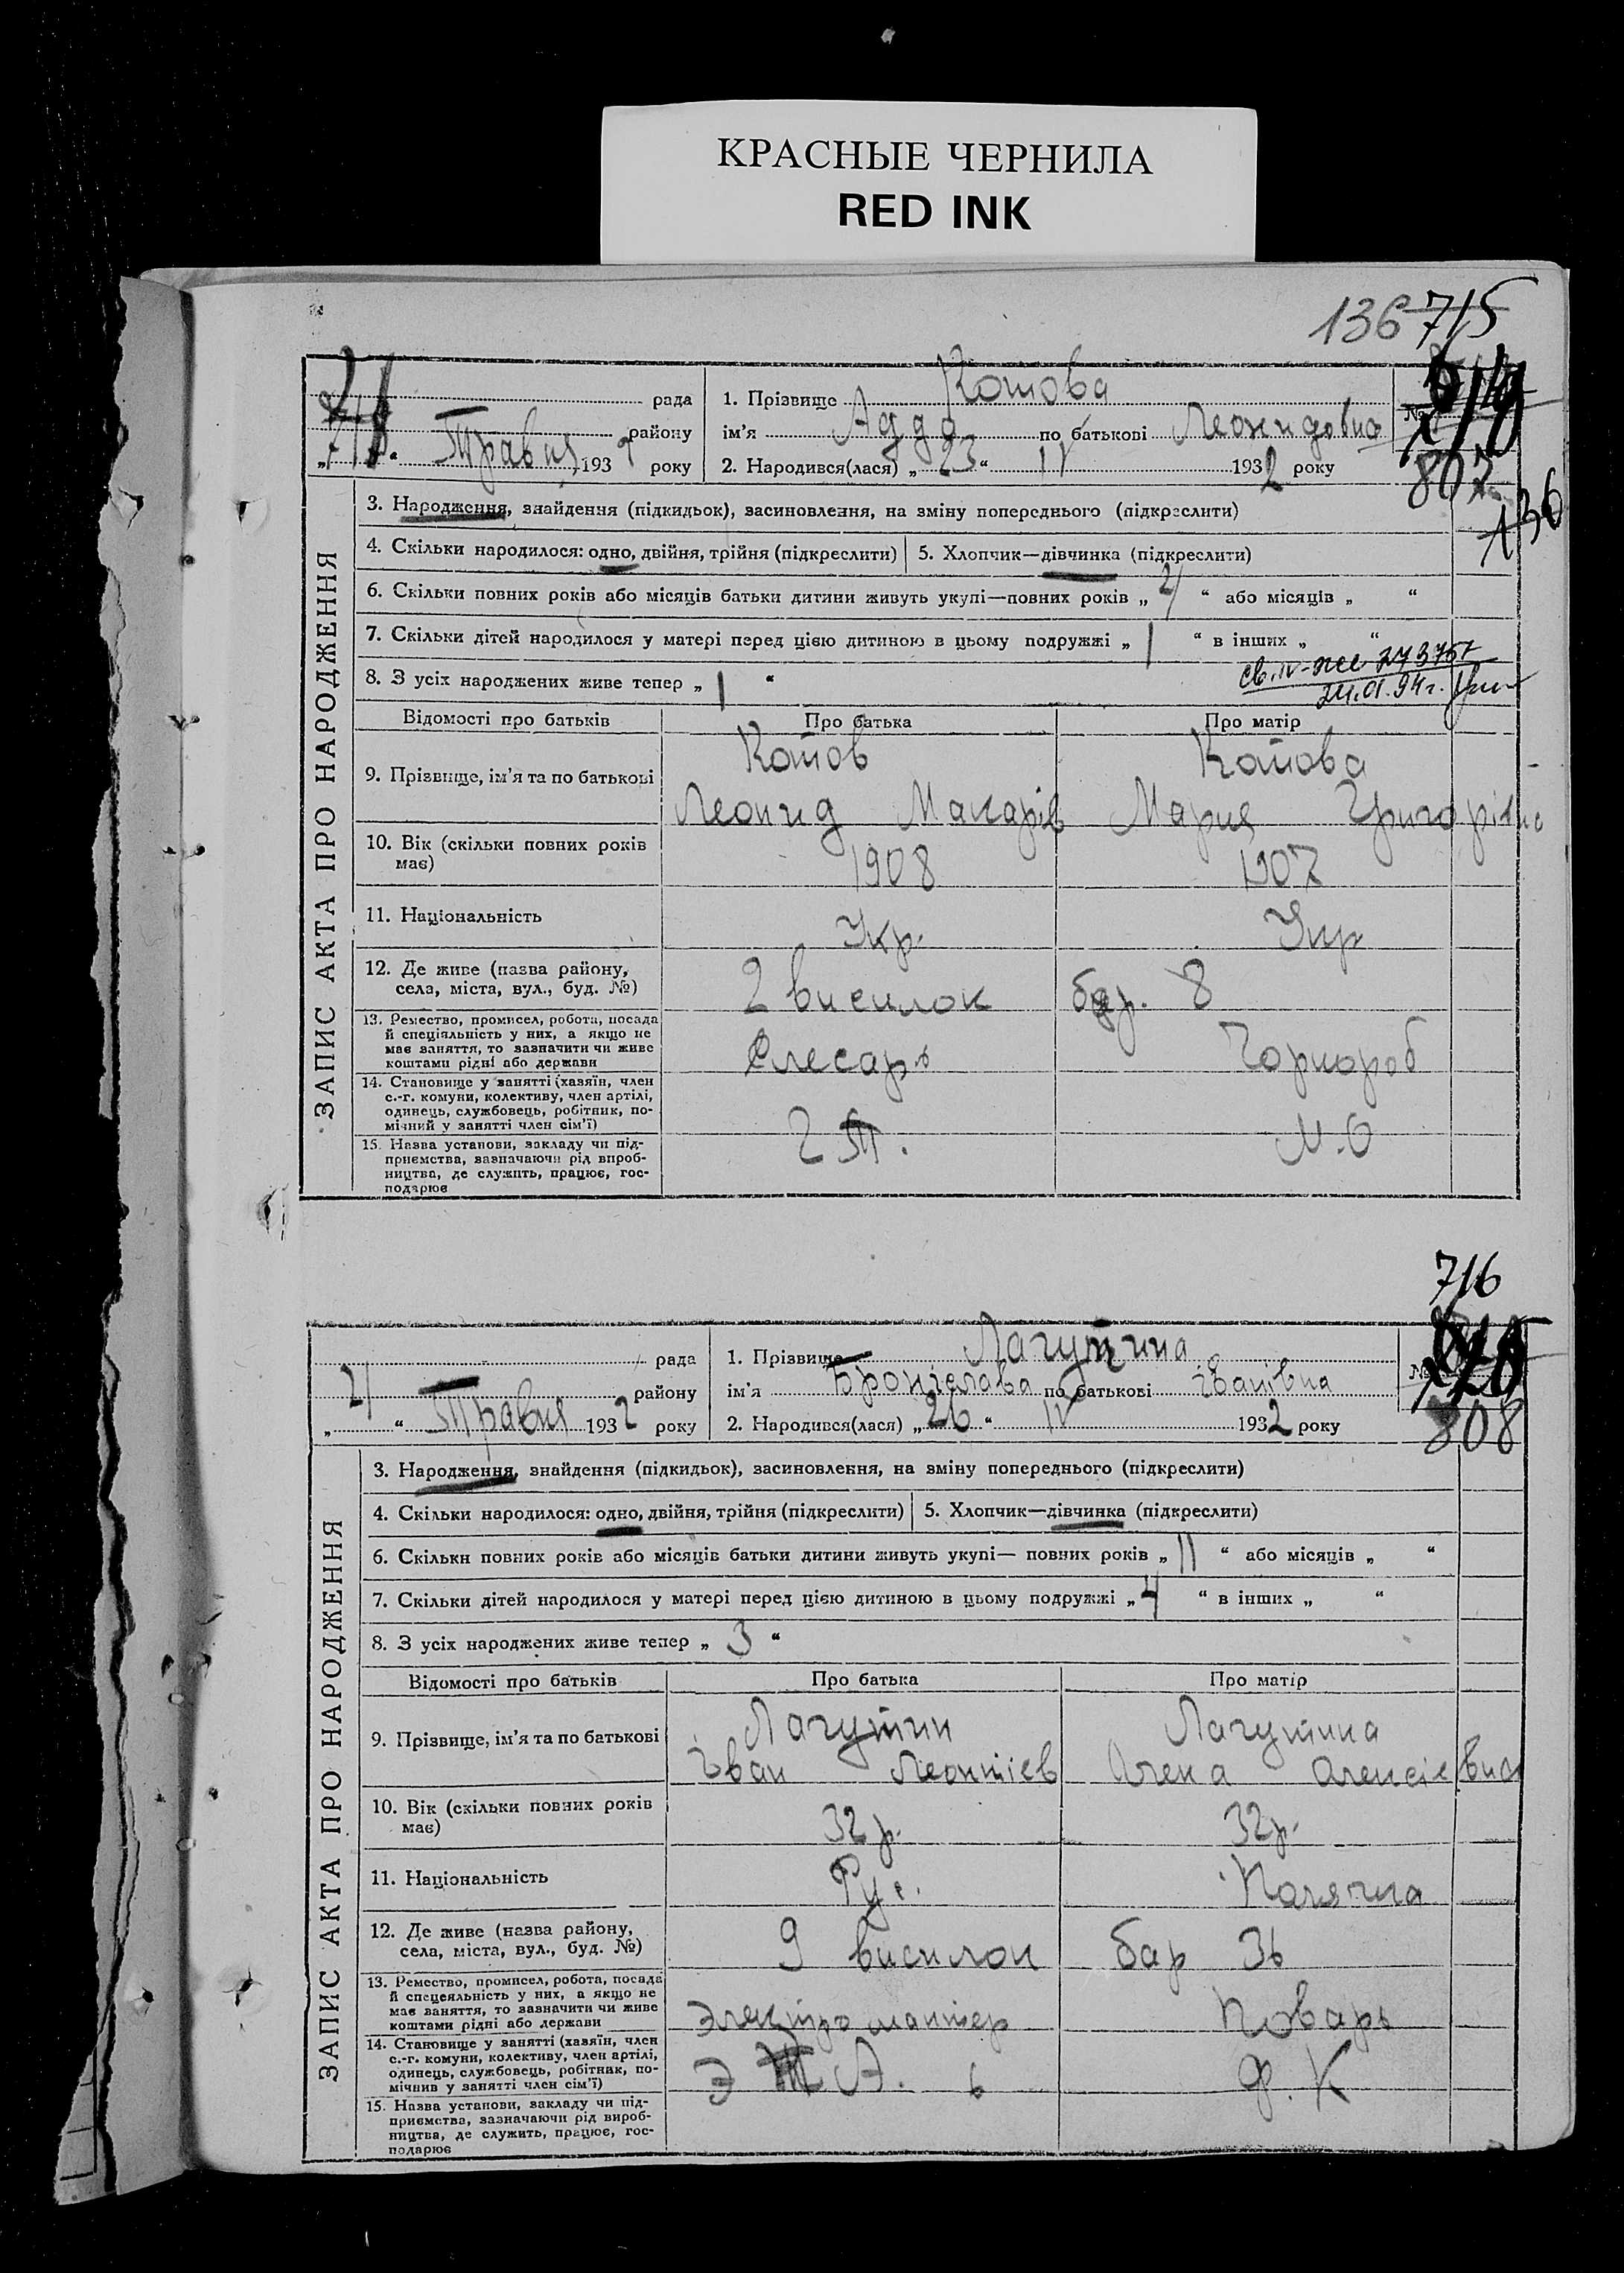 КРАСНЫЕ ЧЕРНИЛА
RED INK
136 715
рада
району
„ “ Травня 193 року
1. Прізвище Котова
ім’я Адда по батькові Леонидовна
2. Народився(лася) „23“ IV 1932 року
№
807
136
ЗАПИС АКТА ПРО НАРОДЖЕННЯ
3. Народження, знайдення (підкидьок), засиновлення, на зміну попереднього (підкреслити)
4. Скільки народилося: одно, двійня, трійня (підкреслити)
5. Хлопчик—дівчинка (підкреслити)
6. Скільки повних років або місяців батьки дитини живуть укупі—повних років „ “ або місяців „ “
7. Скільки дітей народилося у матері перед цією дитиною в цьому подружжі „1“ в інших „ “
8. З усіх народжених живе тепер „1“
24.01.94г.
Відомості про батьків
Про батька
Про матір
9. Прізвище, ім’я та по батькові
Котов
Леонид Макарів
Котова
Мария Григорівна
10. Вік (скільки повних років має)
1908
1907
11. Національність
Укр.
Укр
12. Де живе (назва району, села, міста, вул., буд. №)
2 висилок
бар. 8
13. Ремество, промисел, робота, посада
й спеціяльність у них, а якщо не
має заняття, то зазначити чи живе
коштами рідні або держави
Слесарь
Чорнороб
14. Становище у занятті (хазяїн, член
с.-г. комуни, колективу, член артілі,
одинець, службовець, робітник, по-
мічний у занятті член сім’ї)
М.О
15. Назва установи, закладу чи під-
приємства, зазначаючи рід вироб-
ництва, де служить, працює, гос-
подарює
716
рада
району
„21“ Травня 1932 року
1. Прізвище Лагутина
ім’я Броніслава по батькові Іванівна
2. Народився(лася) „26“ IV 1932 року
№
808
ЗАПИС АКТА ПРО НАРОДЖЕННЯ
3. Народження, знайдення (підкидьок), засиновлення, на зміну попереднього (підкреслити)
4. Скільки народилося: одно, двійня, трійня (підкреслити)
5. Хлопчик—дівчинка (підкреслити)
6. Скільки повних років або місяців батьки дитини живуть укупі— повних років „11“ або місяців „ “
7. Скільки дітей народилося у матері перед цією дитиною в цьому подружжі „4“ в інших „ “
8. З усіх народжених живе тепер „3“
Відомості про батьків
Про батька
Про матір
9. Прізвище, ім’я та по батькові
Лагутин
Іван Леонтіев
Лагутина
Олена Олексіевна
10. Вік (скільки повних років має)
32 р.
32 р.
11. Національність
Рус.
Полячка
12. Де живе (назва району, села, міста, вул., буд. №)
9 висилок
бар 36
13. Ремество, промисел, робота, посада
й спецеяльність у них, а якщо не
має заняття, то зазначити чи живе
коштами рідні або держави
Электро монтер
Поварь
14. Становище у занятті (хазяїн, член
с.-г. комуни, колективу, член артілі,
одинець, службовець, робітник, по-
мічнив у занятті член сім’ї)
Ф.К
15. Назва установи, закладу чи під-
приємства, зазначаючи рід вироб-
ництва, де служить, працює, гос-
подарює